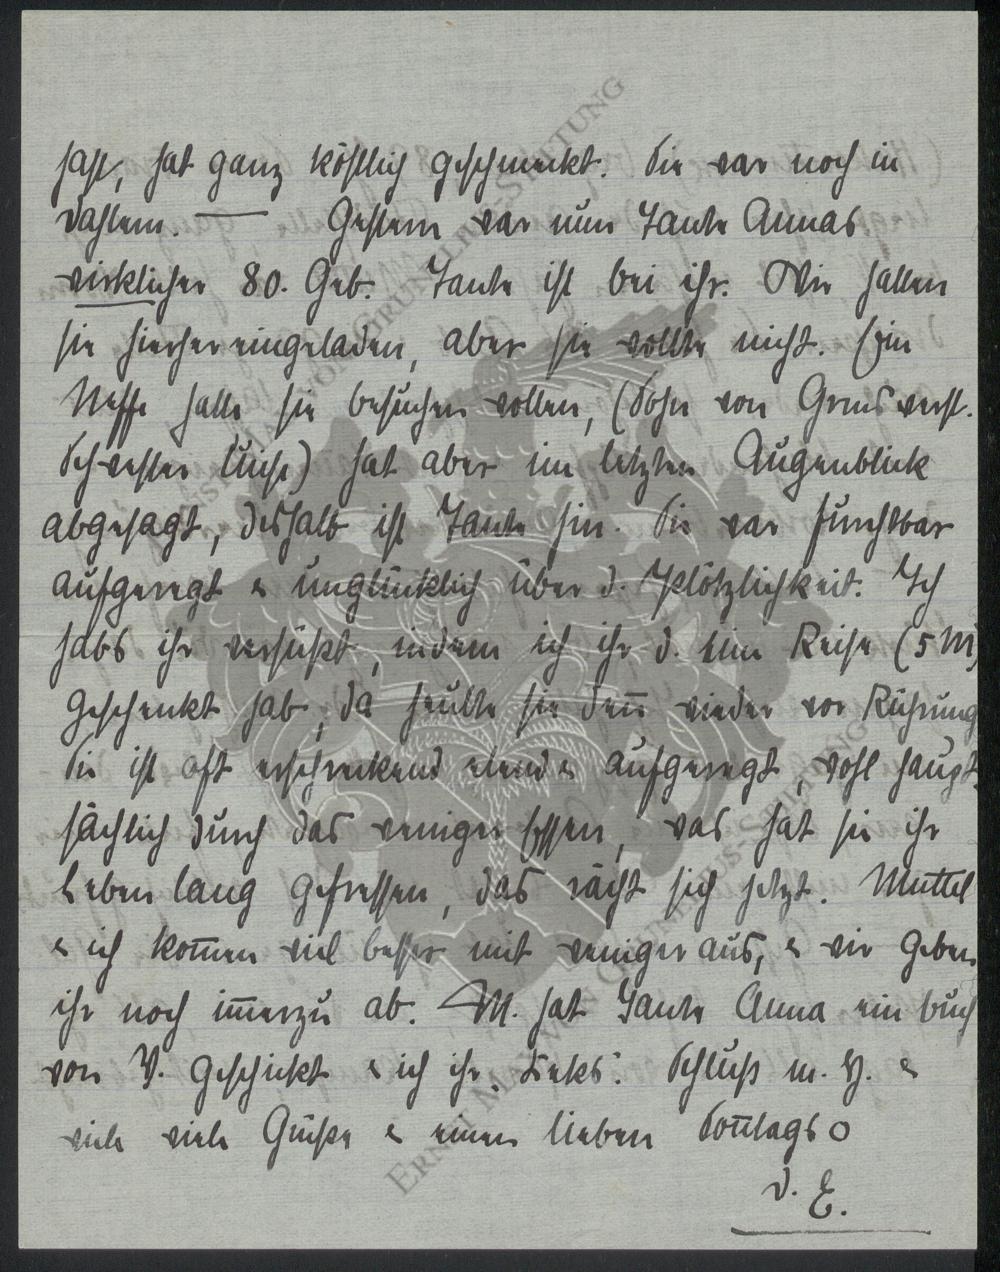 hast, hat ganz köstlich geschmeckt. Sie war noch in
Dahlem. — Gestern war nun Tante Annas
wirklicher 80. Geb. Tante ist bei ihr. Wir hatten
sie hierher eingeladen, aber sie wollte nicht. Ein
Neffe hatte sie besuchen wollen, (Sohn von Grus verst.
Schwester Luise) hat aber im letzten Augenblick
abgesagt, deshalb ist Tante hin. Sie war furchtbar
aufgeregt & unglücklich über d. Plötzlichkeit. Ich
habs ihr versüßt, indem ich ihr d. Reise (5 M)
geschenkt hab, da heulte sie den̄ wieder vor Rührung
Sie ist oft erschreckend elend & aufgeregt, wohl haupt
sächlich durch das weniger Essen, was hat sie ihr
Leben lang gefressen, das rächt sich jetzt. Muttel
& ich kom̄en viel besser mit weniger aus, & wir geben
ihr noch im̄erzu ab. M. hat Tante Anna ein Buch
von V. geschickt & ich ihr Keks. Schluß m. H. &
viele viele Grüße & einen lieben Son̄tags o
D. E.
ERNST MAX VON GRUNELIUS-STIFTUNG
ERNST MAX VON GRUNELIUS-STIFTUNG